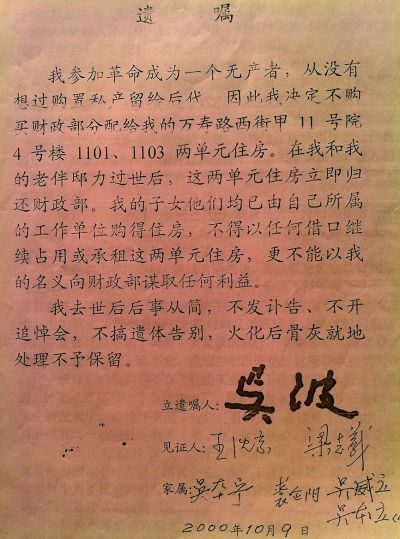 遗 嘱
我参加革命成为一个无产者，从没有
想过购置私产留给后代，因此我决定不购
买财政部分配给我的万寿路西街甲 11 号院
4 号楼 1101、1103 两单元住房。在我和我
的老伴邸力过世后，这两单元住房立即归
还财政部。我的子女他们均已由自己所属
的工作单位购得住房，不得以任何借口继
续占用或承租这两单元住房，更不能以我
的名义向财政部谋取任何利益。
我去世后后事从简，不发讣告、不开
追悼会，不搞遗体告别，火化后骨灰就地
处理不予保留。
立遗嘱人：吴波
见证人：王 梁志义
家属：吴本宁 吴威立
吴本立
2000年10月9日